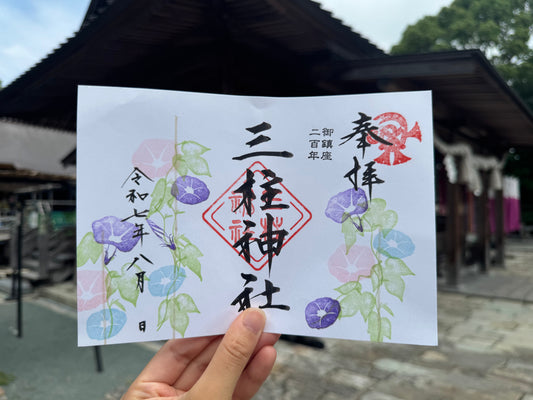 奉拝
御鎮座
二百年
三柱神社
令和七年八月 日